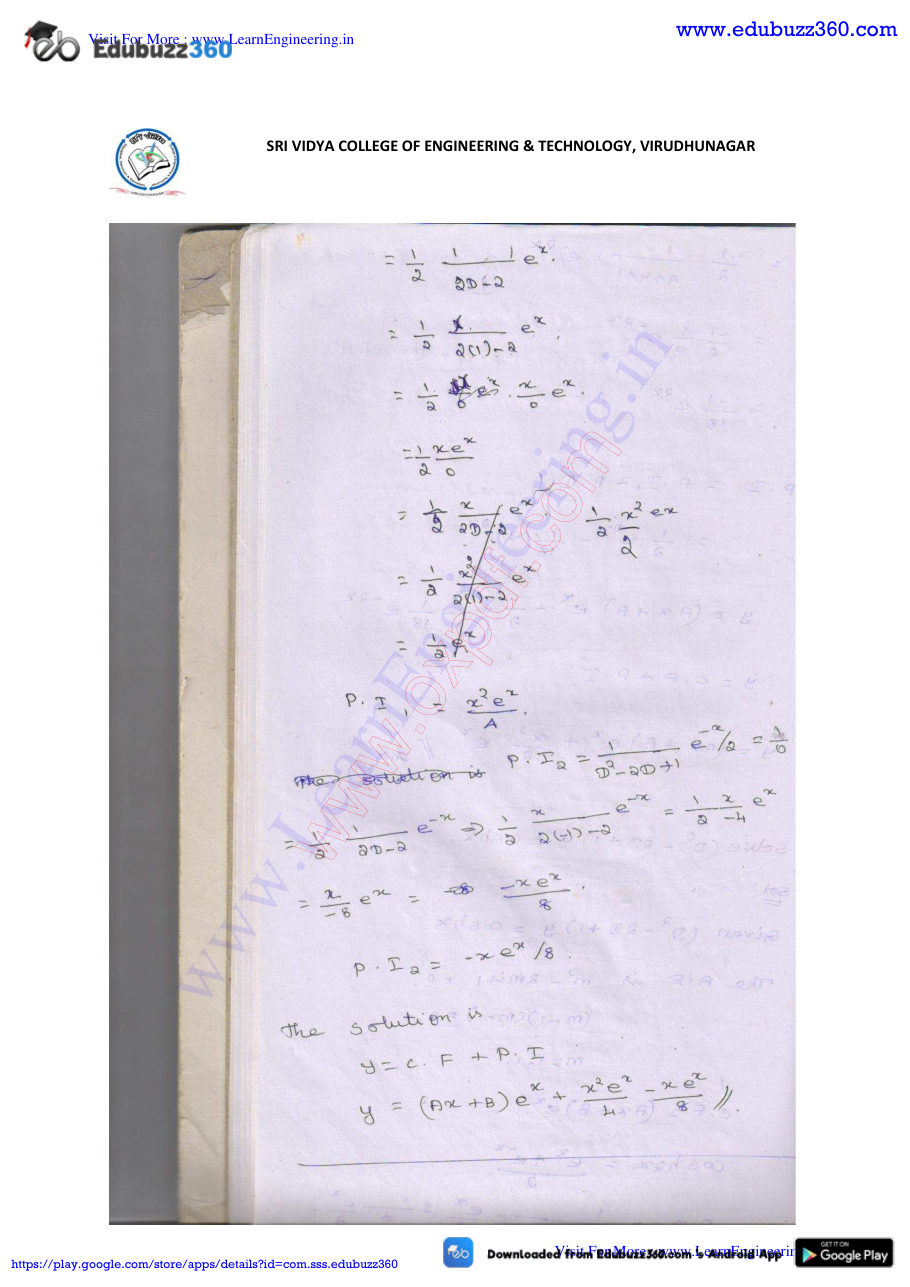 www.edubuzz360.com
Visit For More : www.LearnEngineering.in
Edubuzz360
SRI VIDYA COLLEGE OF ENGINEERING & TECHNOLOGY, VIRUDHUNAGAR
= 1/2 1 . 1/(2D-2) e^x.
= 1/2 x/(2(1)-2) e^x.
= 1/2 . x/0 e^x.
= 1/2 xe^x/0
= 1/2 x/(2D-2) e^x. 1/2 . x^2/2 e^x
= 1/2 x^2/(2(1)-2) e^x
= 1/2 e^x
P.I1 = x^2e^x/4.
The solution is P.I2 = 1/(D^2-2D+1) e^-x/2 = 1/0
= 1/2 1/(2D-2) e^-x => 1/2 x/(2(-1)-2) e^-x = 1/2 x/-4 e^x
= x/-8 e^x = -xe^x/8.
P.I2 = -xe^x/8.
The solution is
y = C.F + P.I
y = (Ax+B)e^x + x^2e^x/4 - xe^x/8 //.
www.LearnEngineering.in
www.oxpdf.com
https://play.google.com/store/apps/details?id=com.sss.edubuzz360
Downloaded from Edubuzz360.com 's Android App
Visit For More : www.LearnEngineerin
GET IT ON
Google Play